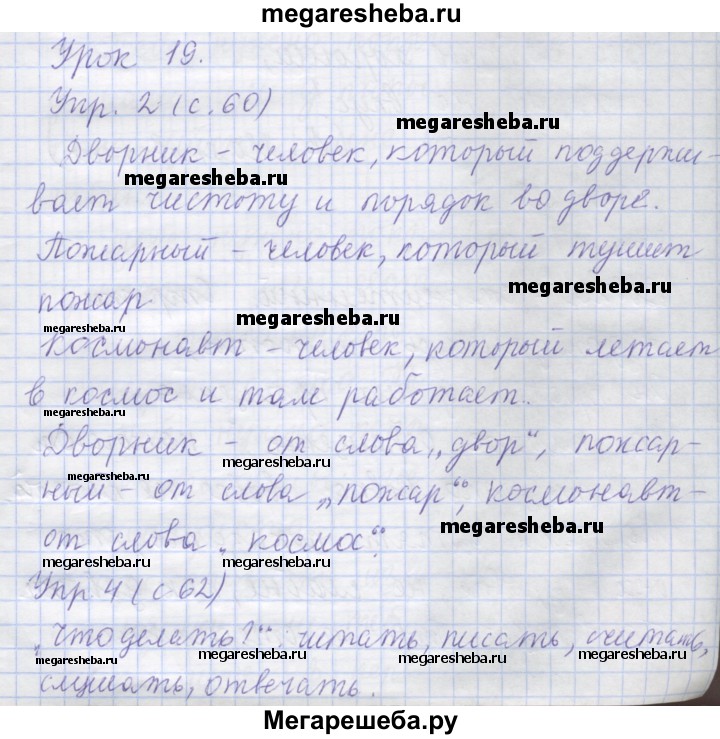 megaresheba.ru
Урок 19.
Упр. 2 (с. 60)
megaresheba.ru
Дворник - человек, который поддержи-
megaresheba.ru
вает чистоту и порядок во дворе.
Пожарный - человек, который тушит
megaresheba.ru
пожар
megaresheba.ru
megaresheba.ru
Космонавт - человек, который летает
в космос и там работает.
megaresheba.ru
Дворник - от слова „двор“, пожар-
megaresheba.ru
megaresheba.ru
ный - от слова „пожар“, космонавт-
megaresheba.ru
от слова „космос“.
megaresheba.ru
megaresheba.ru
Упр 4 (с 62)
megaresheba.ru
„Что делать?“ читать, писать, считать,
megaresheba.ru
megaresheba.ru
megaresheba.ru
слушать, отвечать.
Мегарешеба.ру